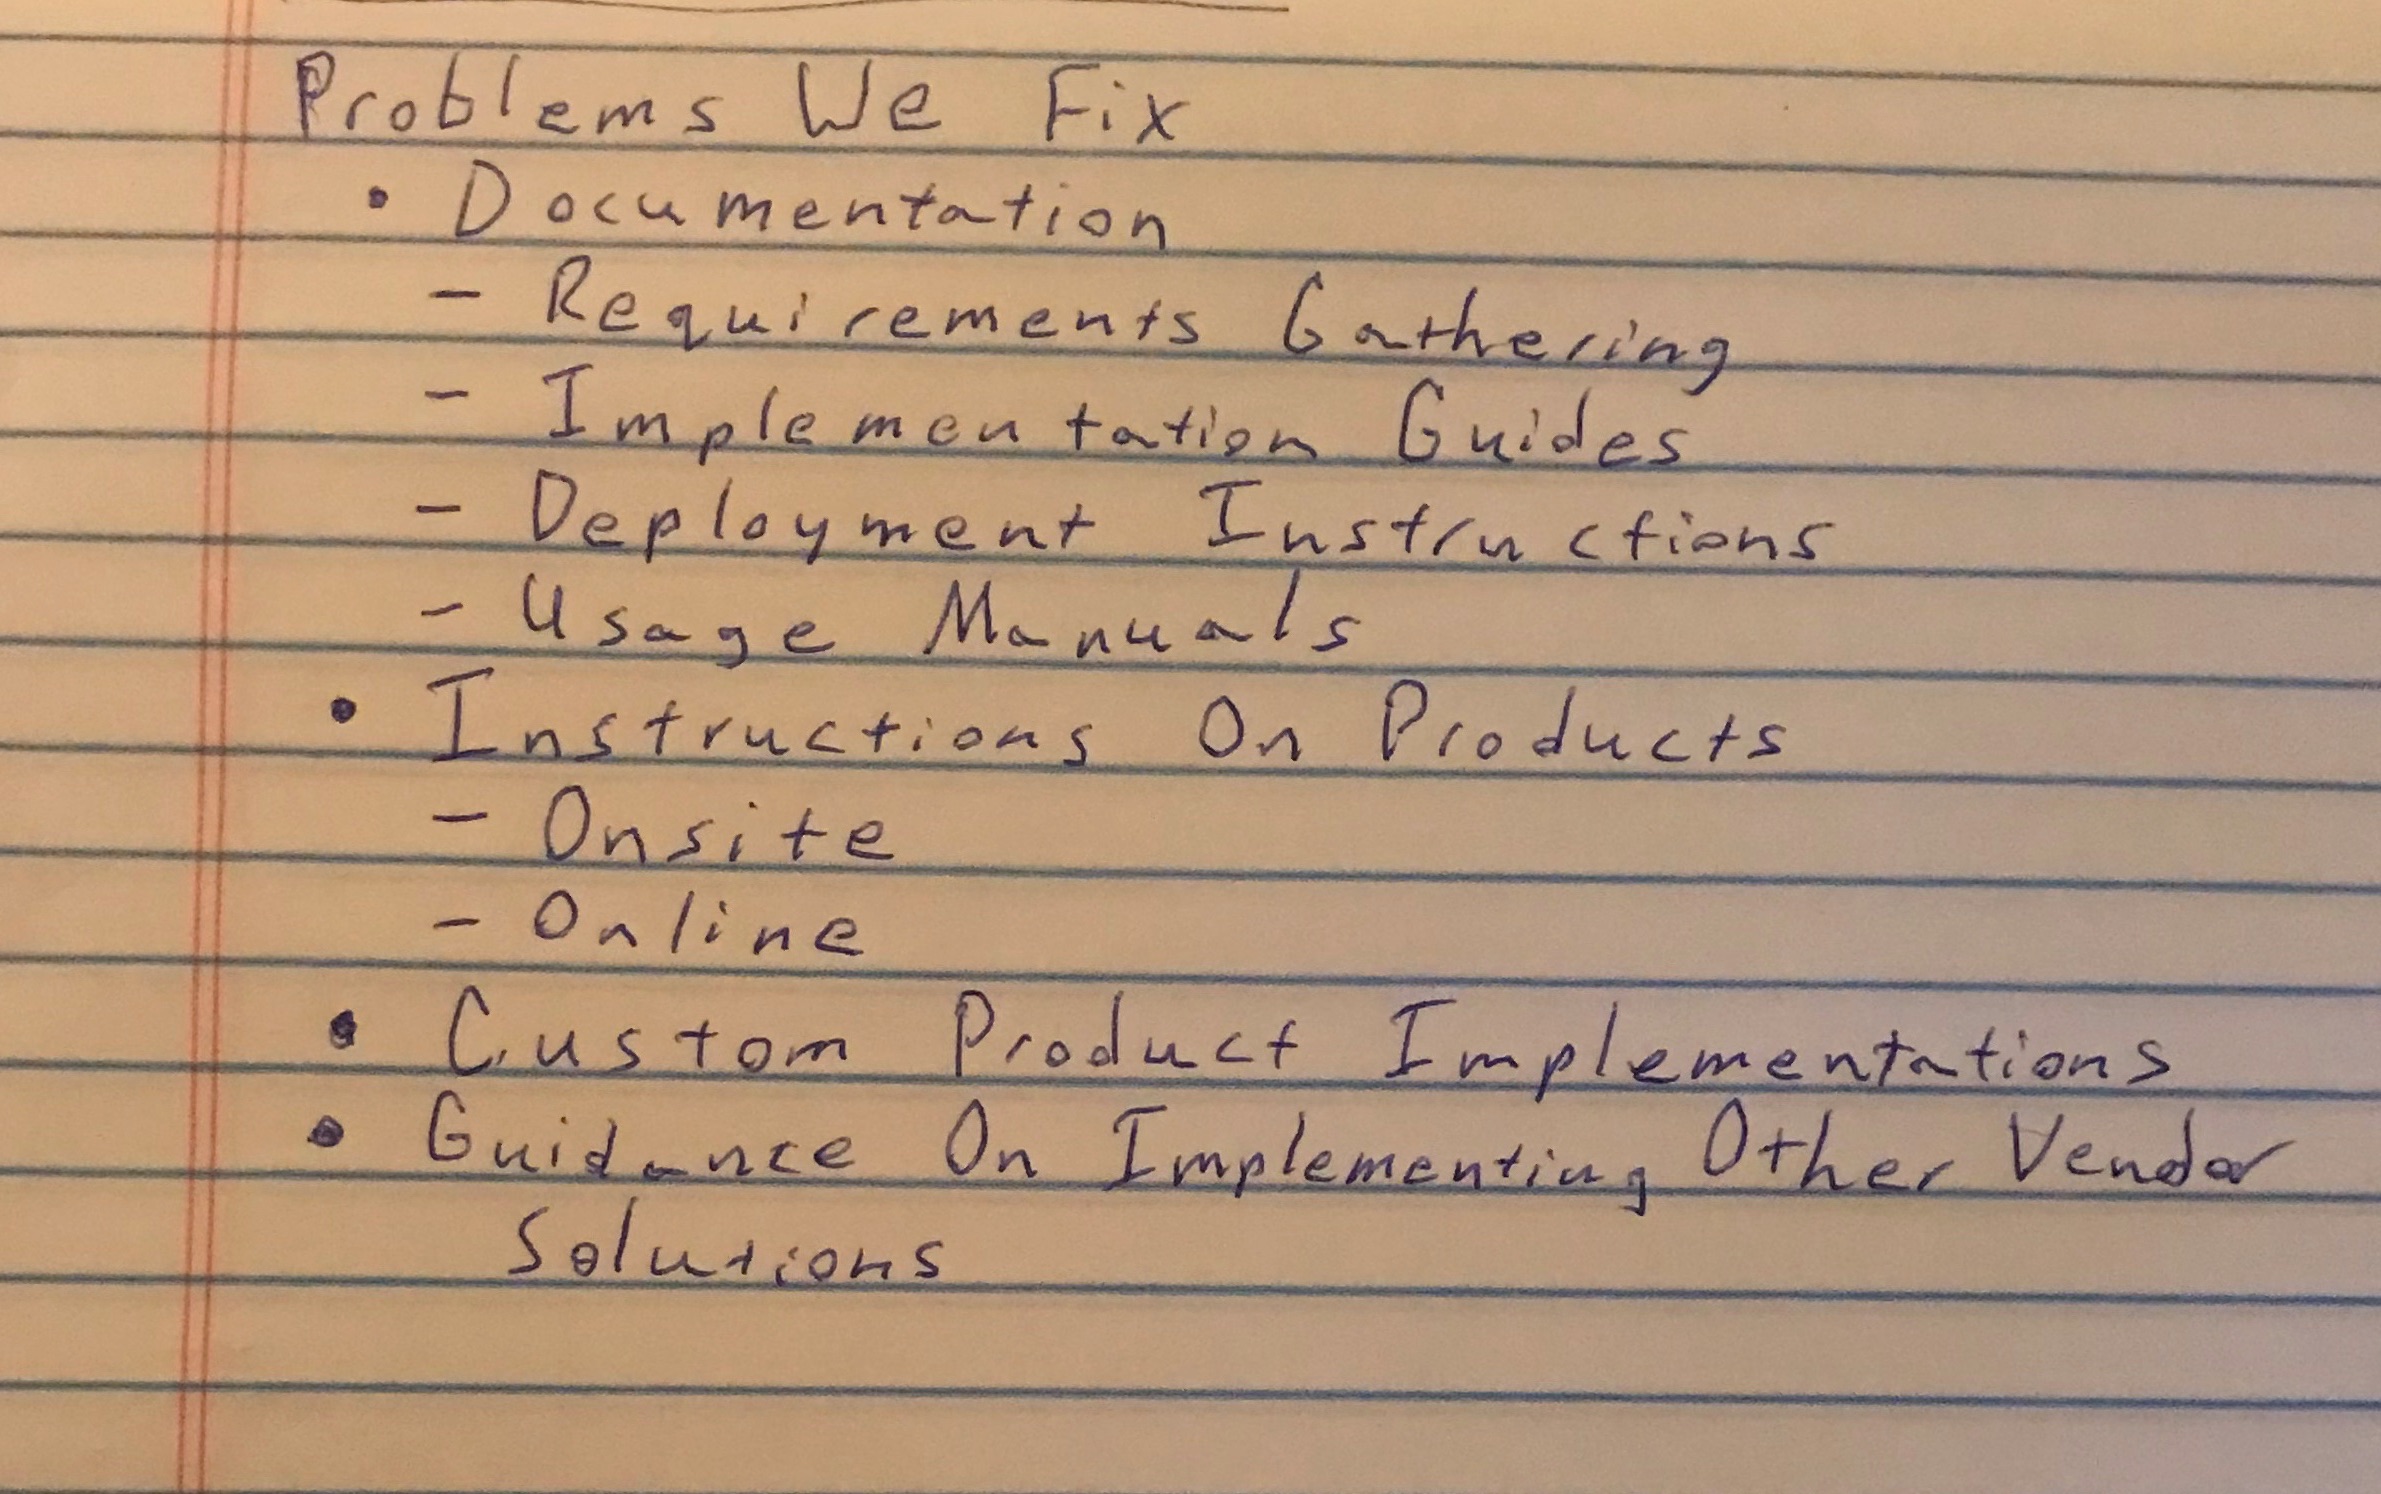 Problems We Fix
• Documentation
- Requirements Gathering
- Implementation Guides
- Deployment Instructions
- Usage Manuals
• Instructions On Products
- Onsite
- Online
• Custom Product Implementations
• Guidance On Implementing Other Vendor
Solutions